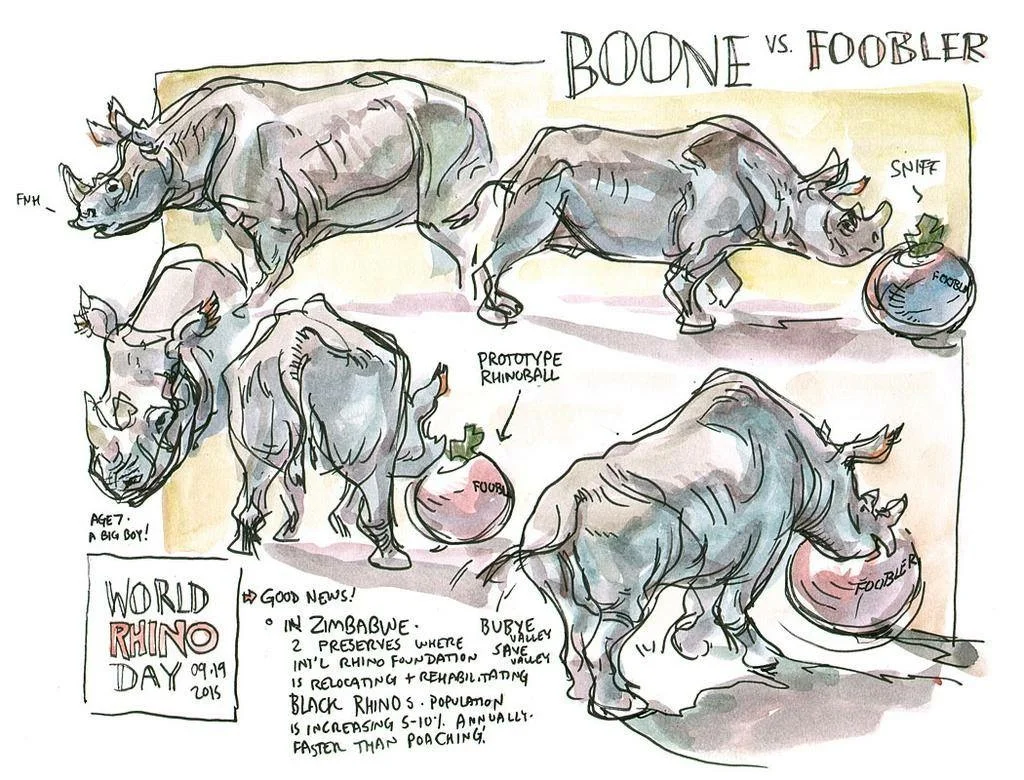 BOONE VS. FOOBLER
FNH
SNIFF
FOOBL
PROTOTYPE
RHINOBALL
FOOBL
AGE 7.
A BIG BOY!
FOOBLER
WORLD
RHINO
DAY 09.19
2015
⇨ GOOD NEWS!
• IN ZIMBABWE.
2 PRESERVES WHERE
INT'L RHINO FOUNDATION
IS RELOCATING + REHABILITATING
BLACK RHINOS. POPULATION
IS INCREASING 5-10% ANNUALLY.
FASTER THAN POACHING!
BUBYE
VALLEY
SAVE
VALLEY